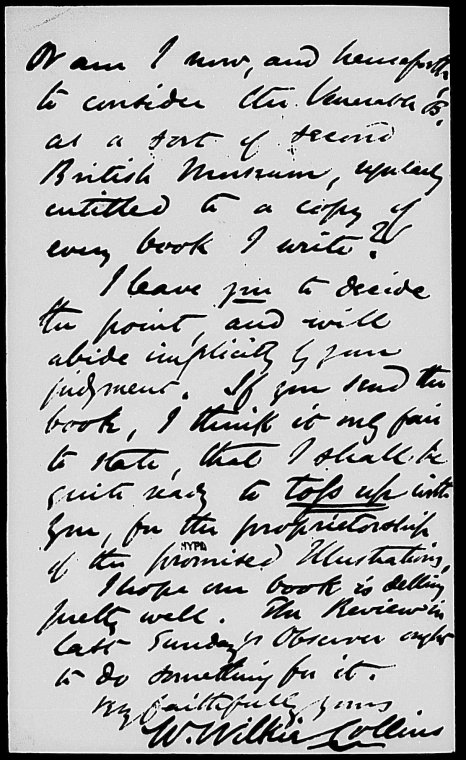 Or am I now, and henceforth,
to consider the Venerable B.
as a sort of second
British Museum, regularly
entitled to a copy of
every book I write?
I leave you to decide
the point, and will
abide implicitly by your
judgment. If you send the
book, I think it only fair
to state, that I shall be
quite ready to toss up with
you, for the proprietorship
of the promised Illustrations,
NYPL
I hope our book is selling
pretty well. The Review in
last Sunday's Observer ought
to do something for it.
Very faithfully yours
W. Wilkie Collins